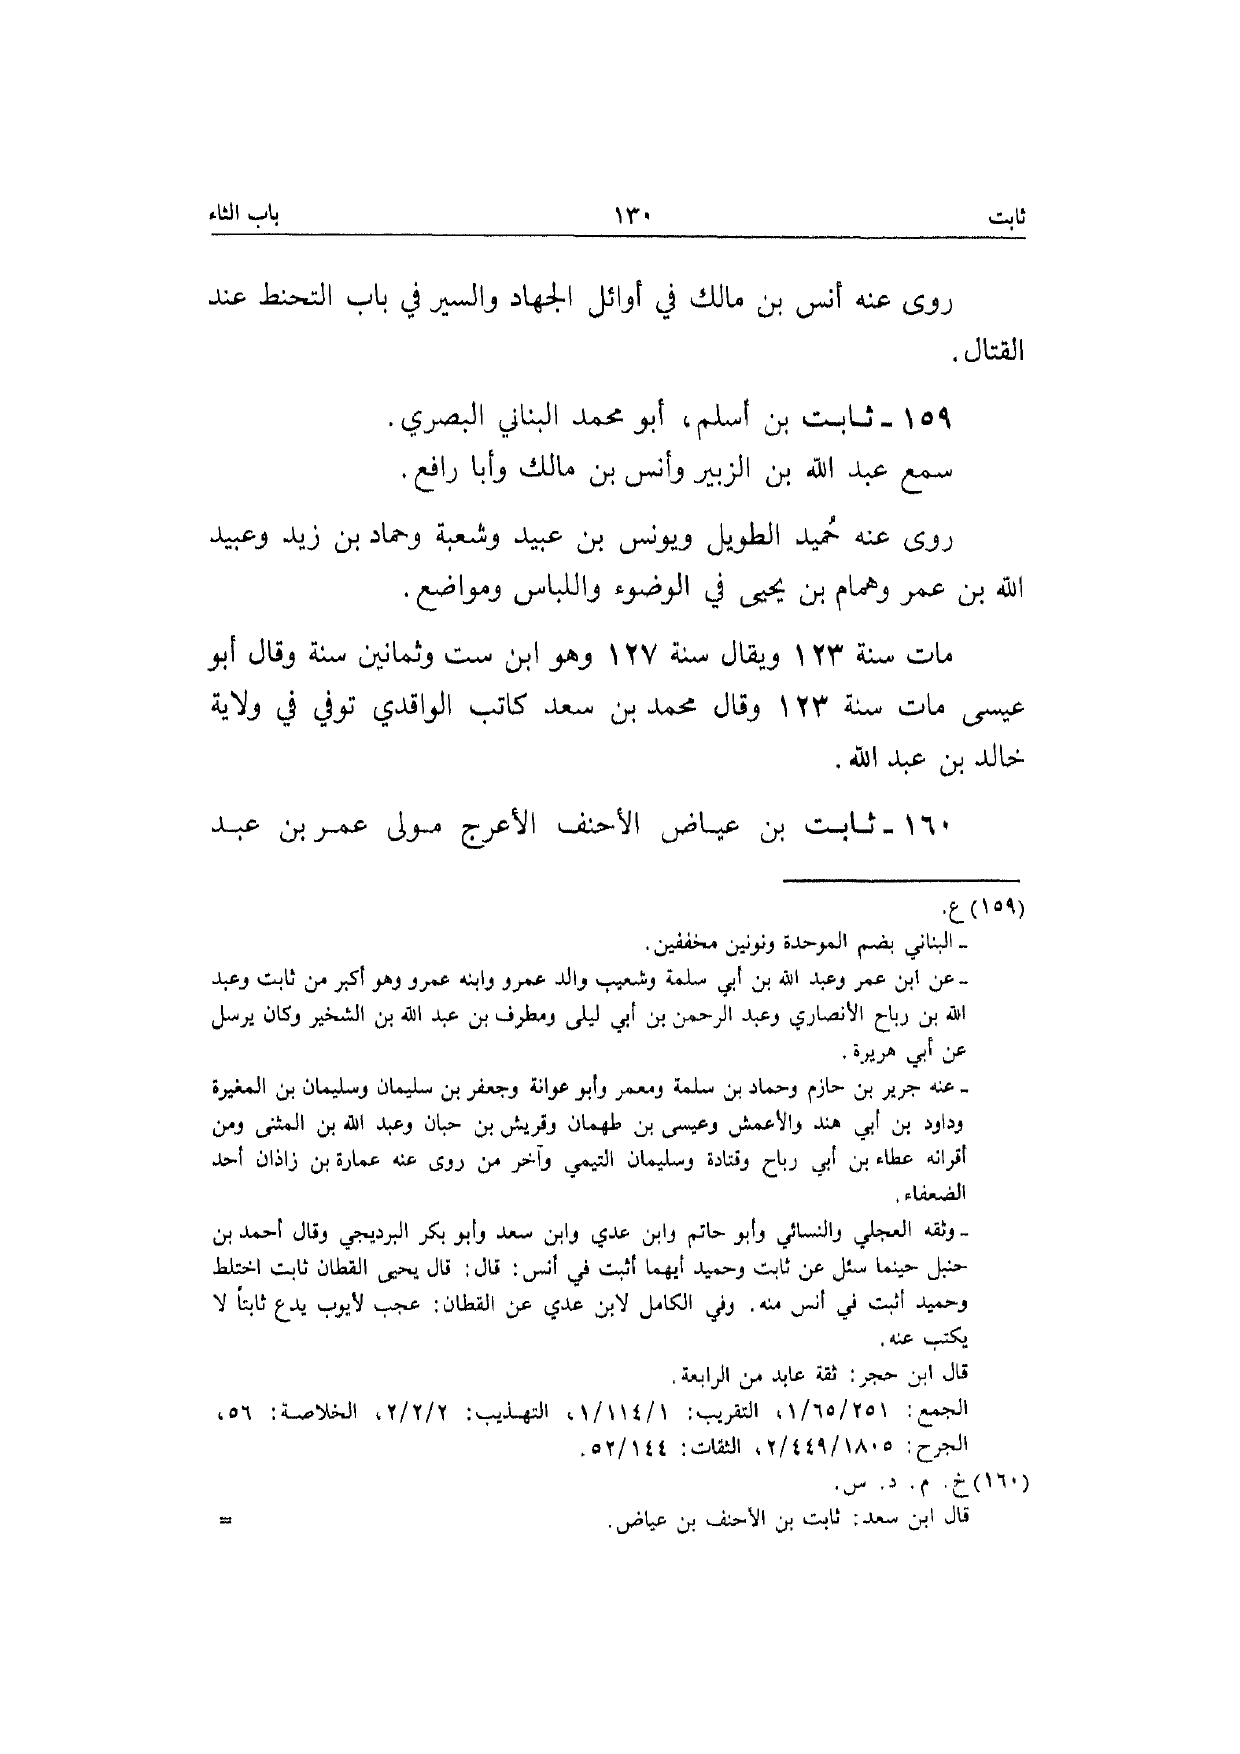 ثابت ١٣٠ باب الثاء
روى عنه أنس بن مالك في أوائل الجهاد والسير في باب التحنط عند
القتال.
١٥٩ ـ ثابت بن أسلم، أبو محمد البناني البصري.
سمع عبد الله بن الزبير وأنس بن مالك وأبا رافع.
روى عنه حُميد الطويل ويونس بن عبيد وشعبة وحماد بن زيد وعبيد
الله بن عمر وهمام بن يحيى في الوضوء واللباس ومواضع.
مات سنة ١٢٣ ويقال سنة ١٢٧ وهو ابن ست وثمانين سنة وقال أبو
عيسى مات سنة ١٢٣ وقال محمد بن سعد كاتب الواقدي توفي في ولاية
خالد بن عبد الله.
١٦٠ ـ ثابت بن عياض الأحنف الأعرج مولى عمر بن عبد
(١٥٩) ع.
ـ البناني بضم الموحدة ونونين مخففين.
ـ عن ابن عمر وعبد الله بن أبي سلمة وشعيب والد عمرو وابنه عمرو وهو أكبر من ثابت وعبد
الله بن رباح الأنصاري وعبد الرحمن بن أبي ليلى ومطرف بن عبد الله بن الشخير وكان يرسل
عن أبي هريرة.
ـ عنه جرير بن حازم وحماد بن سلمة ومعمر وأبو عوانة وجعفر بن سليمان وسليمان بن المغيرة
وداود بن أبي هند والأعمش وعيسى بن طهمان وقريش بن حبان وعبد الله بن المثنى ومن
أقرانه عطاء بن أبي رباح وقتادة وسليمان التيمي وآخر من روى عنه عمارة بن زاذان أحد
الضعفاء.
ـ وثقه العجلي والنسائي وأبو حاتم وابن عدي وابن سعد وأبو بكر البرديجي وقال أحمد بن
حنبل حينما سئل عن ثابت وحميد أيهما أثبت في أنس: قال: قال يحيى القطان ثابت اختلط
وحميد أثبت في أنس منه. وفي الكامل لابن عدي عن القطان: عجب لأيوب يدع ثابتاً لا
يكتب عنه.
قال ابن حجر: ثقة عابد من الرابعة.
الجمع: ١/٦٥/٢٥١، التقريب: ١/١١٤/١، التهذيب: ٢/٢/٢، الخلاصة: ٥٦،
الجرح: ٢/٤٤٩/١٨٠٥، الثقات: ٥٢/١٤٤.
(١٦٠) خ. م. د. س.
قال ابن سعد: ثابت بن الأحنف بن عياض. =